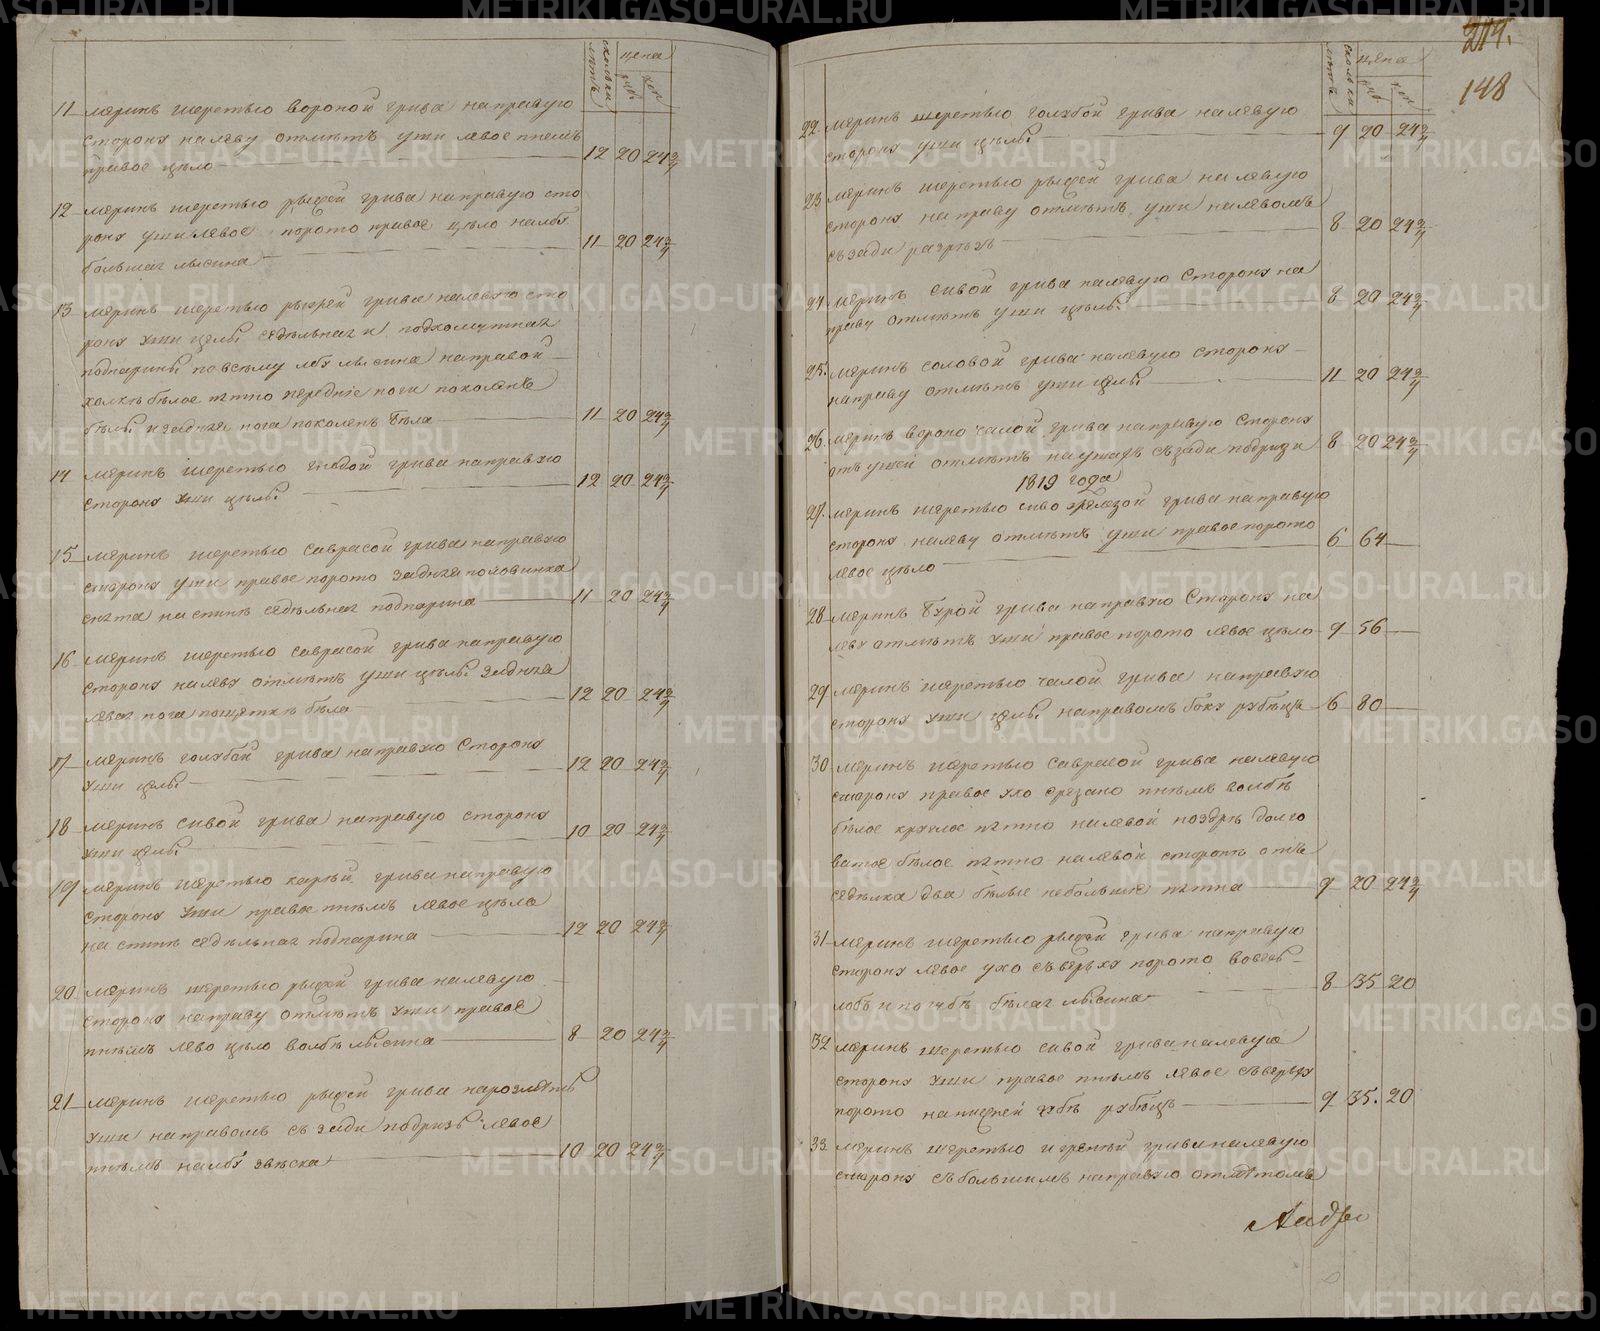 сколькихъ лѣтъ цена
руб: коп
11 меринъ шерстью вороной грива направую
сторону налеву отмѣтъ уши левое пнемъ
правое цѣло 12 20 24 2/4
12 меринъ шерстью рыжей грива направую сто
рону уши левое порото правое цѣло налбу
большая лысина 11 20 24 2/4
13 меринъ шерстью рыжей грива налевую сто
рону уши целы седѣльная и подхомутная
подпарины повсему лбу лысина направой
бѣлое пѣтно передніе ноги поколенъ
бѣлы и задняя нога поколенъ бѣла 11 20 24 2/4
14 меринъ шерстью гнедой грива направую
сторону уши целы 12 20 24 2/4
15 меринъ шерстью саврасой грива направую
сторону уши правое порото задняя половинка
снята наспинѣ седѣльная подпарина 11 20 24 2/4
16 меринъ шерстью саврасой грива направую
сторону налеву отмѣтъ уши целы задняя
левая нога пощетку бѣла 12 20 24 2/4
17 меринъ голубой грива направую сторону
уши целы 12 20 24 2/4
18 меринъ сивой грива направую сторону
уши целы 10 20 24 2/4
19 меринъ шерстью карей грива направую
сторону уши правое пнемъ левое цѣло
на спинѣ седѣльная подпарина 12 20 24 2/4
20 меринъ шерстью рыжей грива налевую
сторону направу отмѣтъ уши правое
пнемъ лево цѣло волбѣ лысина 8 20 24 2/4
21 меринъ шерстью рыжей грива нарозметъ
уши направомъ съ зади подрезъ левое
пнемъ налбу звѣзка 10 20 24 2/4
148
сколькихъ лѣтъ цена
руб: коп
22. меринъ шерстью голубой грива налевую
сторону уши целы 9 20 24 2/4
23 меринъ шерстью рыжей грива налевую
сторону направу отмѣтъ уши налевомъ
съзади разрезъ 8 20 24 2/4
24. меринъ сивой грива налевую сторону на
праву отмѣтъ уши целы 8 20 24 2/4
25. меринъ соловой грива налевую сторону
направу отмѣтъ уши целы 11 20 24 2/4
26. меринъ вороно чалой грива направую сторону
отъ ушей отмѣтъ наушахъ съзади подрези 8 20 24 2/4
1819 года
27. меринъ шерстью сиво железой грива направую
сторону налеву отмѣтъ уши правое порото
левое цѣло 6 64
28 меринъ бурой грива направую сторону на
леву отмѣтъ уши правое порото левое цѣло 9 56
29 меринъ шерстью чалой грива направую
сторону уши целы направомъ боку рубецъ 6 80
30 меринъ шерстью саврасой грива налевую
сторону правое ухо срезано пнемъ волбѣ
бѣлое круглое пѣтно налевой поздрѣ долго
ватое бѣлое пѣтно налевой сторонѣ отъ
седѣлка два бѣлые небольшие пѣтна 9 20 24 2/4
31 меринъ шерстью рыжей грива направую
сторону левое ухо съверху порото вовесь
лобъ и погубѣ бѣлая лысина 8 35 20
32 меринъ шерстью сивой грива налевую
сторону уши правое пнемъ левое съверху
порото нанижней губѣ рубецъ 9 35. 20
33. меринъ шерстью игреней грива налевую
сторону събольшимъ направую отмѣтомъ